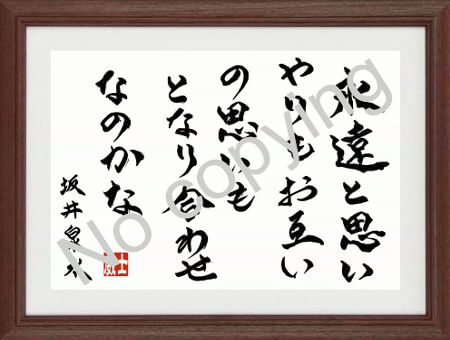 永遠と思い
やりもお互い
の思いも
となり合わせ
なのかな
坂井泉水
No copying